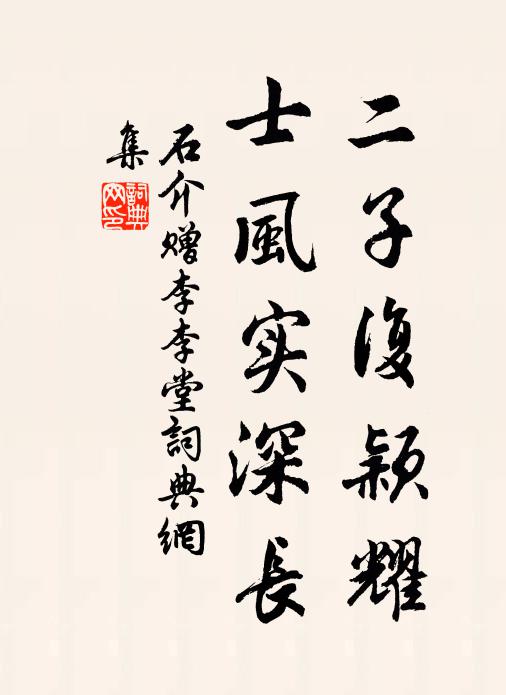 二子復颖耀
士風实深長
石介赠李李堂詞典網
集
詞典
网印